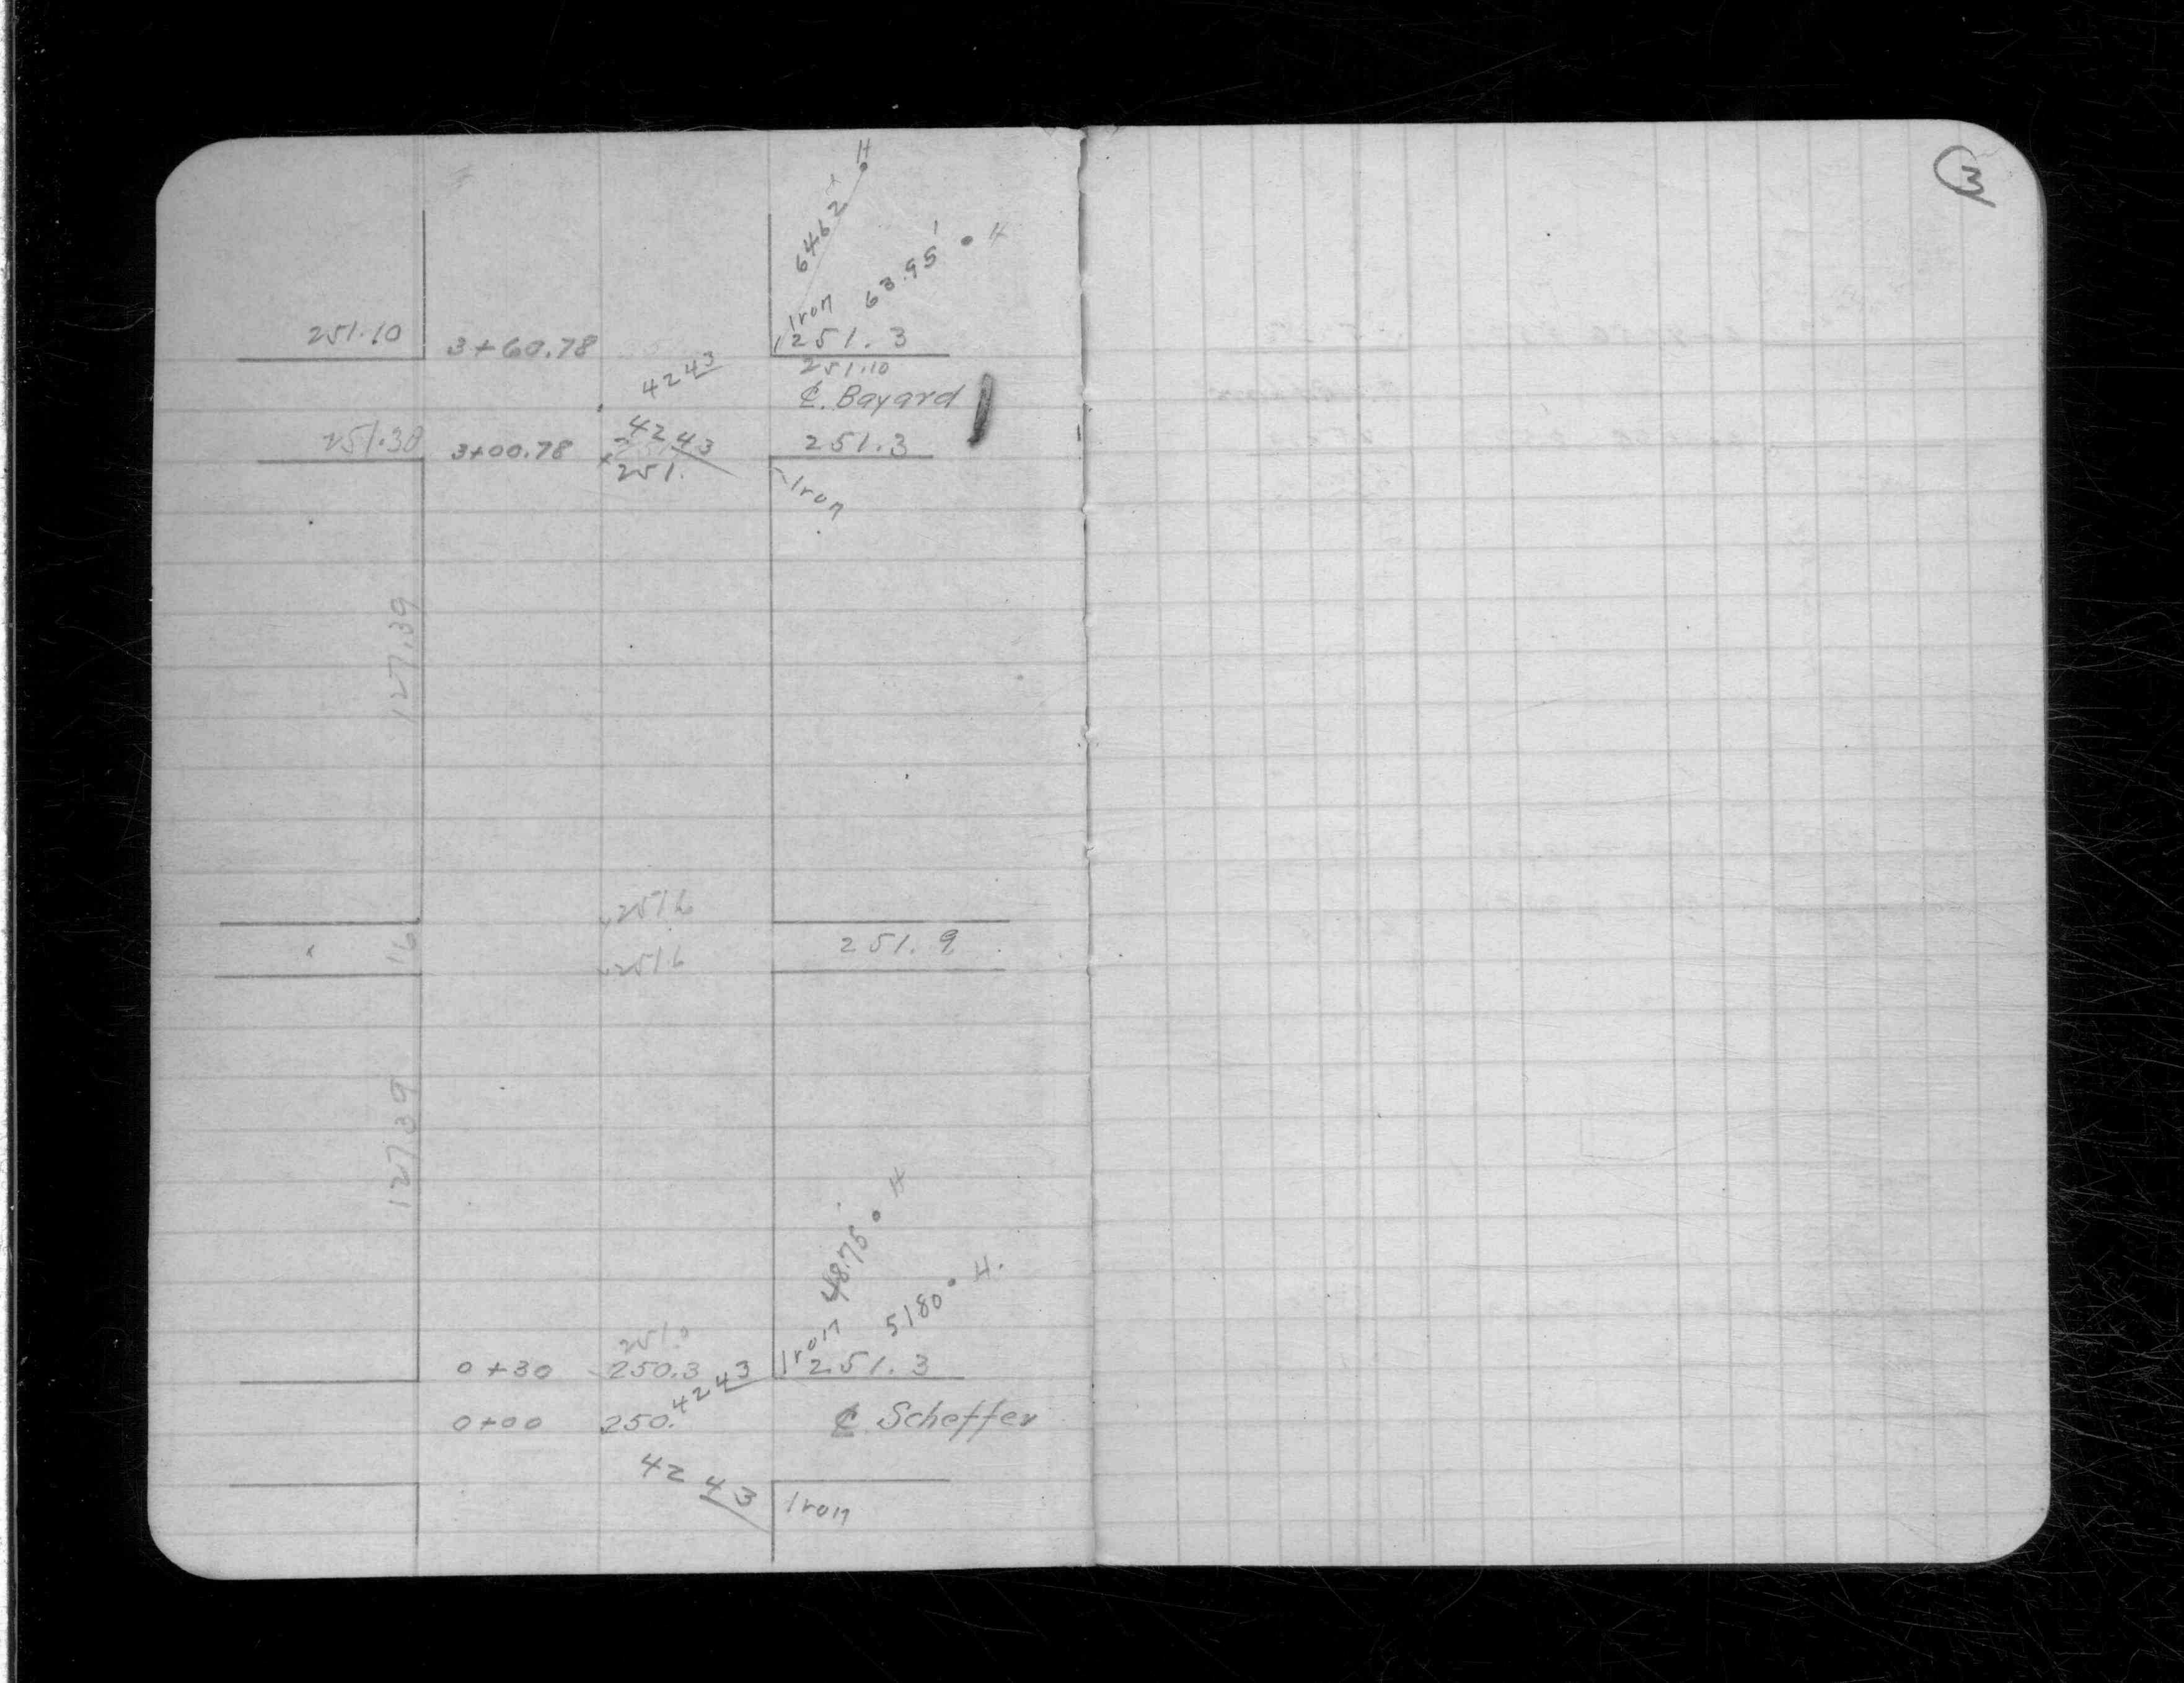 3
H
64.62
63.95' H
Iron
251.10 3+60.78 251.3
4243 251.10
₵. Bayard
251.30 3+00.78 4243 251.3
251.
Iron
127.39
251.6
16 251.9
251.6
127.39
48.75 H
51.80 H.
Iron
251.0
0+30 250.3 4243 251.3
0+00 250. ₵ Scheffer
4243
Iron